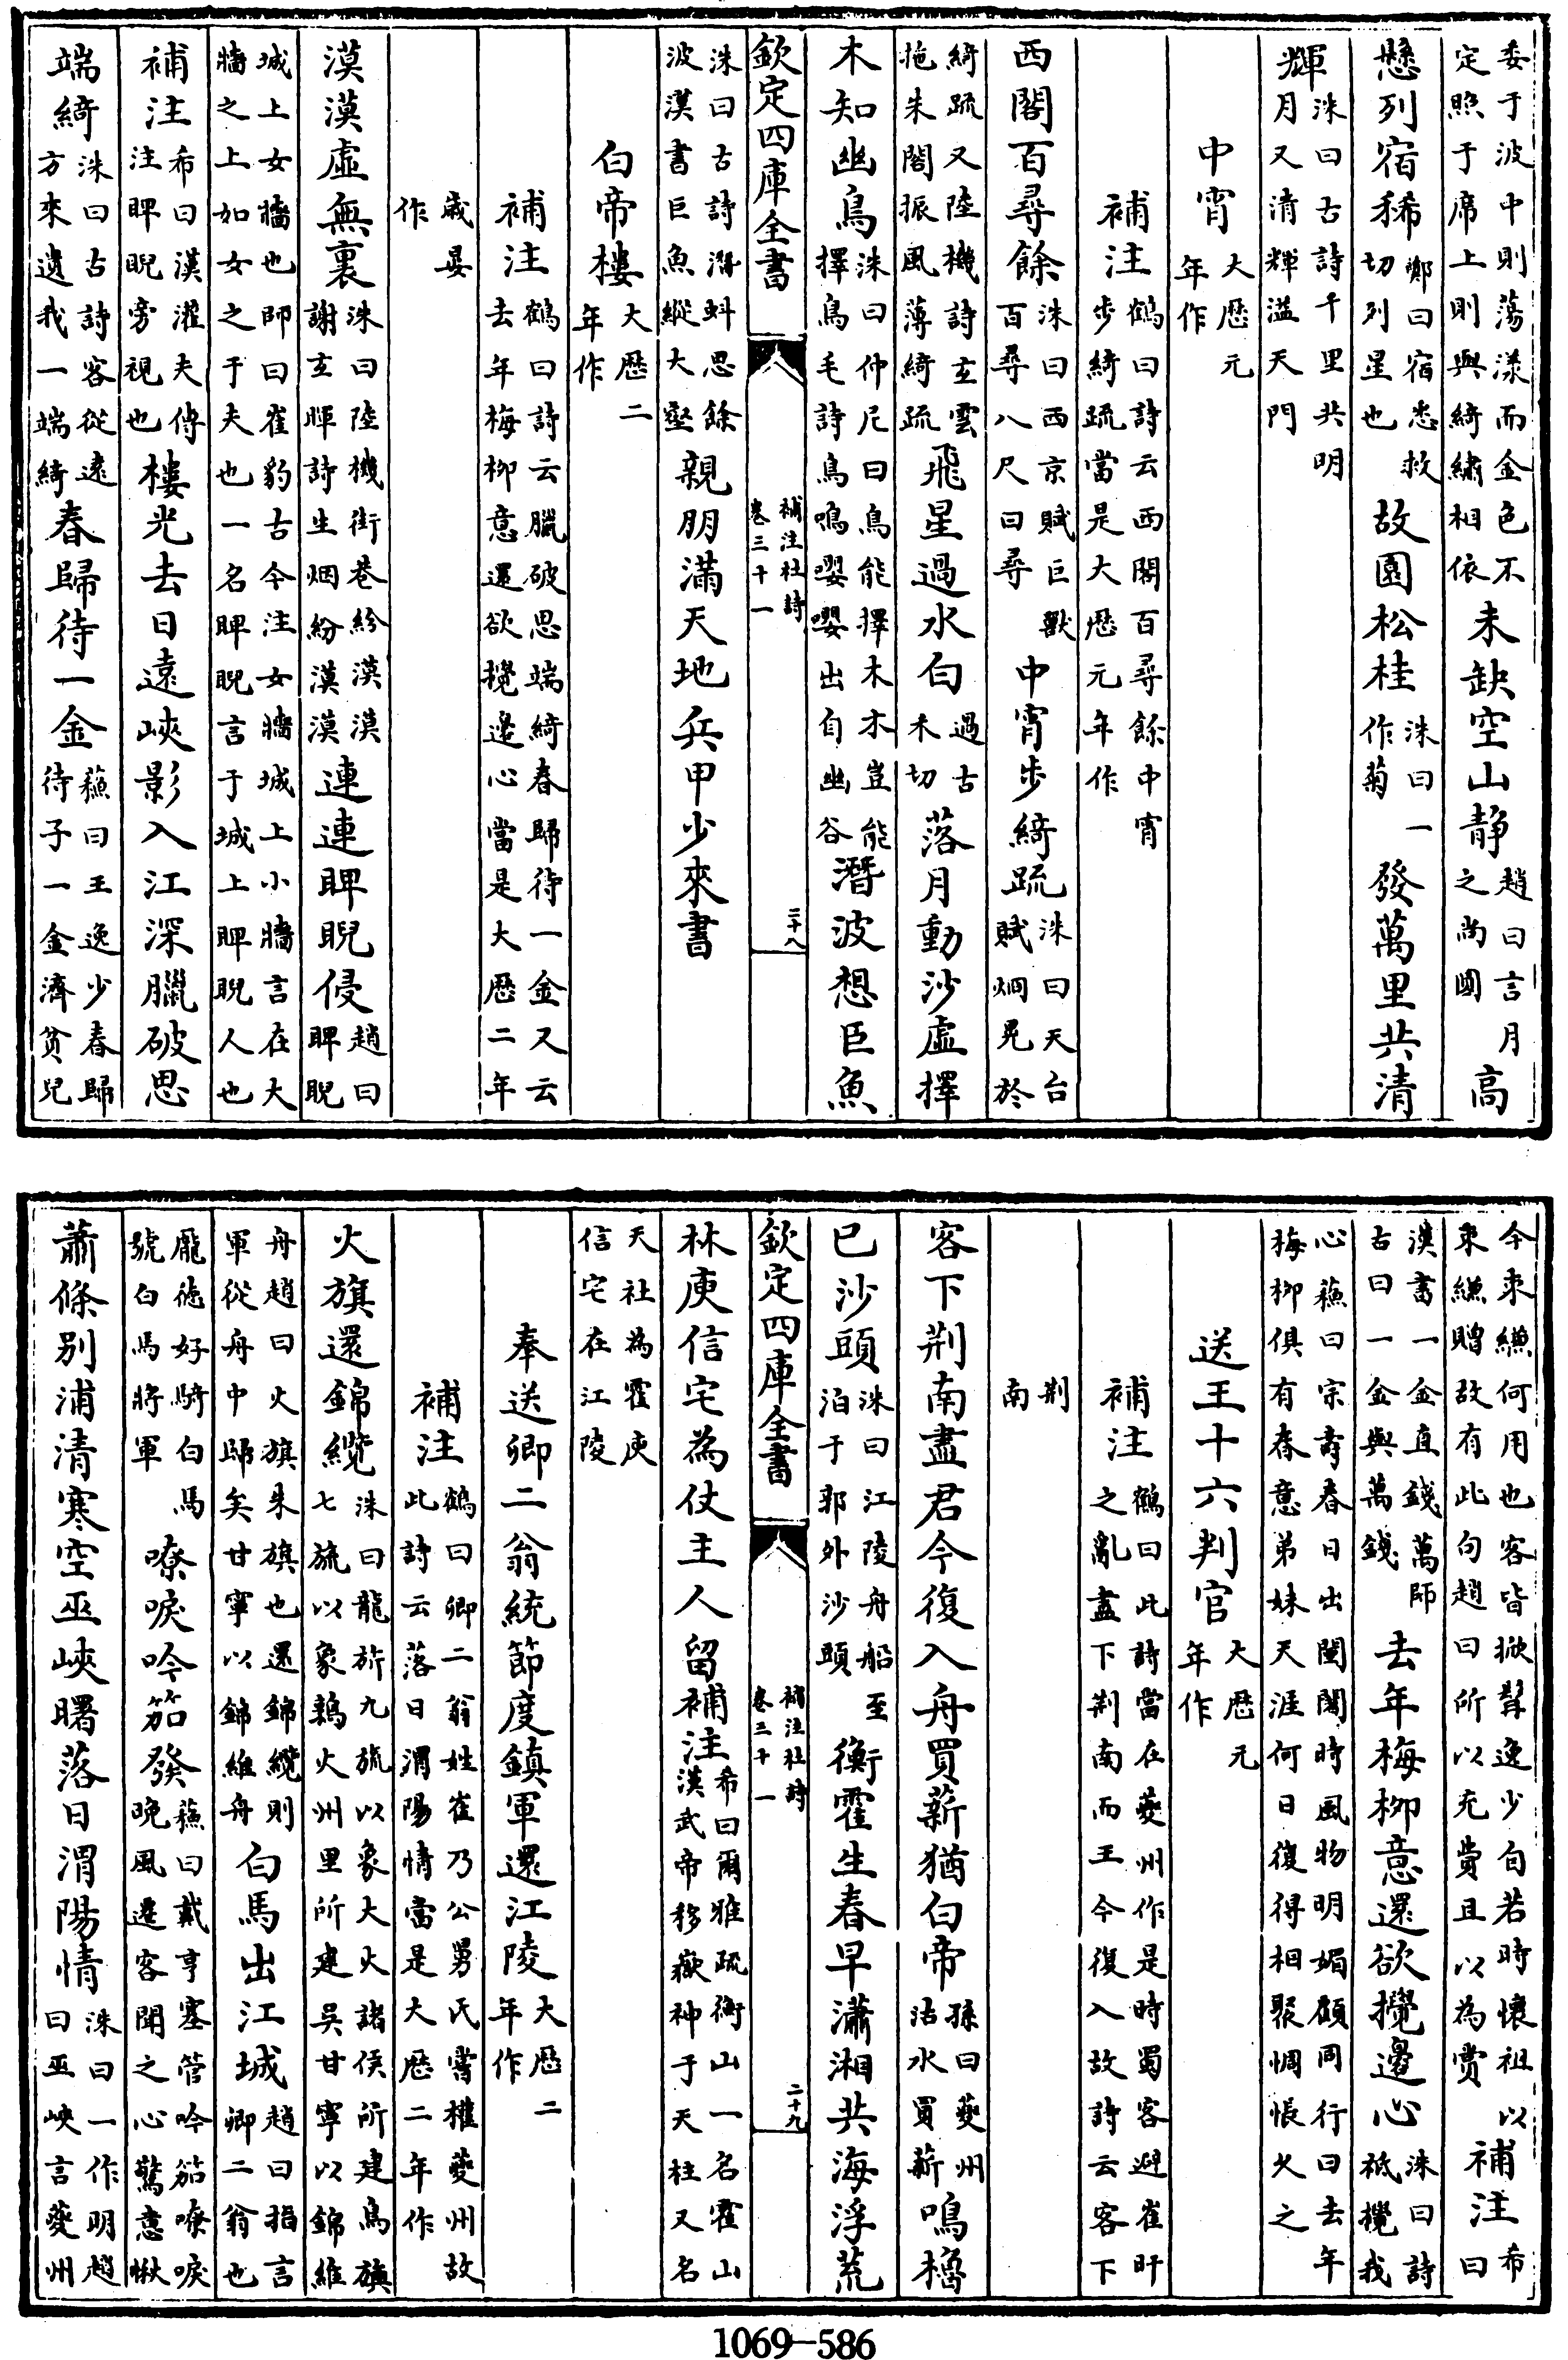 委于波中則蕩漾而金色不定照于席上則與綺繡相依未缺空山静趙曰言月之尚圓高
懸列宿稀鄭曰宿悉救切列星也故園松桂洙曰一作菊發萬里共清
輝洙曰古詩千里共明月又清輝溢天門
中宵大厯元年作
補注鶴曰詩云西閣百尋餘中宵步綺疏當是大厯元年作
西閣百尋餘洙曰西京賦巨獸百尋八尺曰尋中宵步綺疏洙曰天台賦烱晃於
綺疏又陸機詩玄雲拖朱閣振風薄綺疏飛星過水白過古禾切落月動沙虚擇
木知幽鳥洙曰仲尼曰鳥能擇木木豈能擇鳥毛詩鳥鳴嚶嚶出自幽谷潛波想巨魚
欽定四庫全書 補注杜詩卷三十一 二十八
洙曰古詩潛蚪思餘波漢書巨魚縱大壑親朋滿天地兵甲少來書
白帝樓大厯二年作
補注鶴曰詩云臘破思端綺春歸待一金又云去年梅柳意還欲攪邊心當是大厯二年
歲晏作
漠漠虚無裏洙曰陸機街巷紛漠漠謝玄暉詩生烟紛漠漠連連睥睨侵趙曰睥睨
城上女牆也師曰崔豹古今注女牆城上小牆言在大牆之上如女之于夫也一名睥睨言于城上睥睨人也
補注希曰漢灌夫傳注睥睨旁視也樓光去日遠峽影入江深臘破思
端綺洙曰古詩客從遠方來遺我一端綺春歸待一金蘇曰王逸少春歸待子一金濟貧兒
今束縑何用也客皆掀髯逸少自若時懷祖以束縑贈故有此句趙曰所以充費且以為賞補注希曰
漢書一金直錢萬師古曰一金與萬錢去年梅柳意還欲攪邊心洙曰詩祇攪我
心蘇曰宗育春日出閨闥時風物明媚顧同行曰去年梅柳俱有春意弟妹天涯何日復得相聚惆悵久之
送王十六判官大厯元年作
補注鶴曰此詩當在夔州作是時蜀客避崔旰之亂盡下荆南而王今復入故詩云客下
荆南
客下荆南盡君今復入舟買薪猶白帝孫曰夔州沽水買薪鳴櫓
已沙頭洙曰江陵舟船至泊于郭外沙頭衡霍生春早瀟湘共海浮荒
欽定四庫全書 補注杜詩卷三十一 二十九
林庾信宅為仗主人留補注希曰爾雅疏衡山一名霍山漢武帝移嶽神于天柱又名
天社為霍庾信宅在江陵
奉送卿二翁統節度鎮軍還江陵大厯二年作
補注鶴曰卿二翁姓崔乃公舅氏嘗權夔州故此詩云落日渭陽情當是大厯二年作
火旗還錦纜洙曰龍旂九旒以象大火諸侯所建鳥旟七旒以象鶉火州里所建吳甘寧以錦維
舟趙曰火旗朱旗也還錦纜則軍從舟中歸矣甘寧以錦維舟白馬出江城趙曰指言卿二翁也
龐德好騎白馬號白馬將軍嘹唳吟笳發蘇曰戴亨塞管吟笳嘹唳晚風遷客聞之心驚意愀
蕭條别浦清寒空巫峽曙落日渭陽情洙曰一作明趙曰巫峽言夔州
1069-586